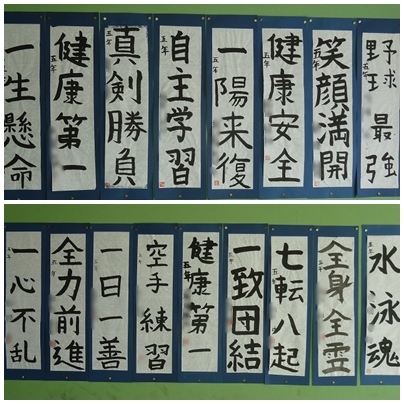 野球最強
五年
笑顔満開
五年
健康安全
五年
一陽来復
五年
自主学習
五年
真剣勝負
五年
健康第一
五年
一生懸命
五年
水泳魂
五年
全身全霊
五年
七転八起
五
一致団結
五年
健康第一
五年
空手練習
五年
一日一善
五年
全力前進
五年
一心不乱
五年